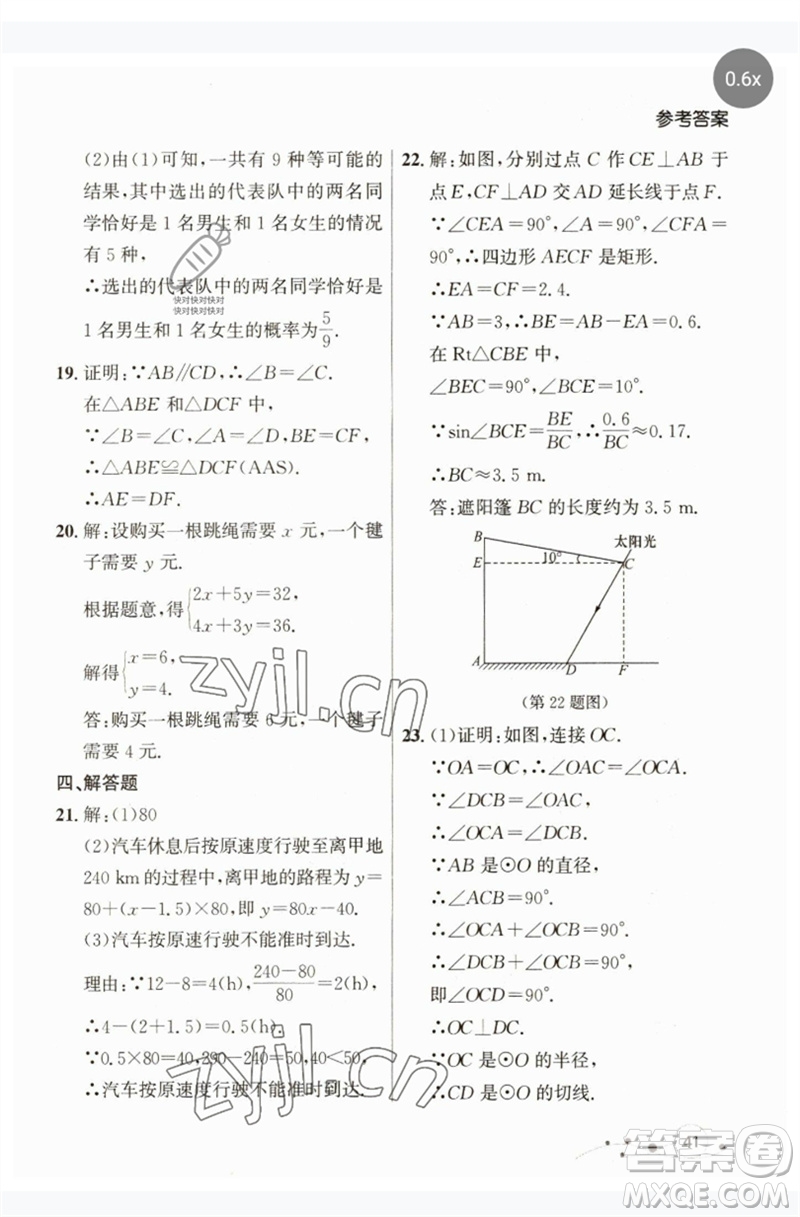 0.6x
参考答案
(2)由(1)可知,一共有 9 种等可能的
结果,其中选出的代表队中的两名同
学恰好是 1 名男生和 1 名女生的情况
有 5 种,
∴选出的代表队中的两名同学恰好是
1 名男生和 1 名女生的概率为5/9.
快对快对快对
快对快对快对
19. 证明:∵AB∥CD,∴∠B=∠C.
在△ABE 和△DCF 中,
∵∠B=∠C,∠A=∠D,BE=CF,
∴△ABE≌△DCF(AAS).
∴AE=DF.
20. 解:设购买一根跳绳需要 x 元,一个毽
子需要 y 元.
根据题意,得{2x+5y=32,
4x+3y=36.
解得{x=6,
y=4.
答:购买一根跳绳需要 6 元,一个毽子
需要 4 元.
四、解答题
21. 解:(1)80
(2)汽车休息后按原速度行驶至离甲地
240 km 的过程中,离甲地的路程为 y=
80+(x-1.5)×80,即 y=80x-40.
(3)汽车按原速度行驶不能准时到达.
理由:∵12-8=4(h),(240-80)/80=2(h),
∴4-(2+1.5)=0.5(h).
∵0.5×80=40,290-240=50,40<50,
∴汽车按原速度行驶不能准时到达.
22. 解:如图,分别过点 C 作 CE⊥AB 于
点 E,CF⊥AD 交 AD 延长线于点 F.
∵∠CEA=90°,∠A=90°,∠CFA=
90°,∴四边形 AECF 是矩形.
∴EA=CF=2.4.
∵AB=3,∴BE=AB-EA=0.6.
在 Rt△CBE 中,
∠BEC=90°,∠BCE=10°.
∵sin∠BCE=BE/BC,∴0.6/BC≈0.17.
∴BC≈3.5 m.
答:遮阳篷 BC 的长度约为 3.5 m.
B
太阳光
E
10°
C
A
D
F
(第 22 题图)
23. (1)证明:如图,连接 OC.
∵OA=OC,∴∠OCA=∠OAC.
∵∠DCB=∠OAC,
∴∠OCA=∠DCB.
∵AB 是⊙O 的直径,
∴∠ACB=90°.
∴∠OCA+∠OCB=90°.
∴∠DCB+∠OCB=90°,
即∠OCD=90°.
∴OC⊥DC.
∵OC 是⊙O 的半径,
∴CD 是⊙O 的切线.
41
zyjl.cn
zyjl.cn
答案卷
MXQE.COM